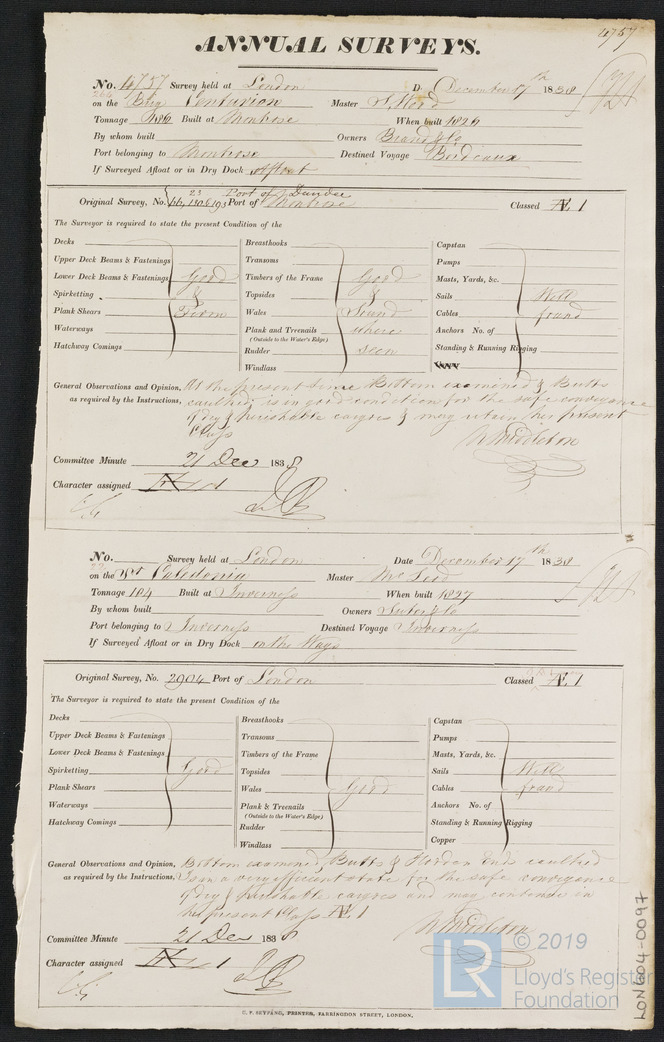 4757
ANNUAL SURVEYS.
No. 4757 Survey held at London D. December 17th 1838
on the Brig Centurion Master
Tonnage 186 Built at Montrose When built 1826
By whom built Owners Brand & Co
Port belonging to Montrose Destined Voyage Bordeaux
If Surveyed Afloat or in Dry Dock afloat
Port of Dundee
Original Survey, No. Port of Montrose Classed Æ 1
The Surveyor is required to state the present Condition of the
Decks Breasthooks Capstan
Upper Deck Beams & Fastenings Transoms Pumps
Lower Deck Beams & Fastenings Good Timbers of the Frame Good Masts, Yards, &c.
Spirketting & Topsides & Sails Well
Plank Shears Firm Wales Sound Cables found
Waterways Plank and Treenails where Anchors No. of
(Outside to the Water's Edge)
Hatchway Comings Rudder seen Standing & Running Rigging
Windlass
General Observations and Opinion, At the present time Bottom examined & Butts
as required by the Instructions, caulked, is in good condition for the safe conveyance
of dry & perishable cargoes & may retain her present
Class
W Middleton
Committee Minute 21 Dec 1838
Character assigned Æ 1
No. Survey held at London Date December 17th 1838
on the Caledonia Master McLeod
Tonnage 104 Built at Inverness When built 1827
By whom built Owners
Port belonging to Inverness Destined Voyage Inverness
If Surveyed Afloat or in Dry Dock on the Ways
Original Survey, No. 2904 Port of London Classed Æ 1
The Surveyor is required to state the present Condition of the
Decks Breasthooks Capstan
Upper Deck Beams & Fastenings Transoms Pumps
Lower Deck Beams & Fastenings Timbers of the Frame Masts, Yards, &c.
Spirketting Good Topsides Sails Well
Plank Shears Wales Good Cables found
Waterways Plank & Treenails Anchors No. of
(Outside to the Water's Edge)
Hatchway Comings Rudder Standing & Running Rigging
Windlass Copper
General Observations and Opinion, Bottom examined, Butts & Hooden Ends caulked
as required by the Instructions, Is in a very efficient state for the safe conveyance
of dry & perishable cargoes and may continue in
her present Class Æ 1
W Middleton
Committee Minute 21 Dec 1838
Character assigned Æ 1
C. F. SEYFANG, PRINTER, FARRINGDON STREET, LONDON.
LON604-0097
LR
© 2019
Lloyd's Register
Foundation